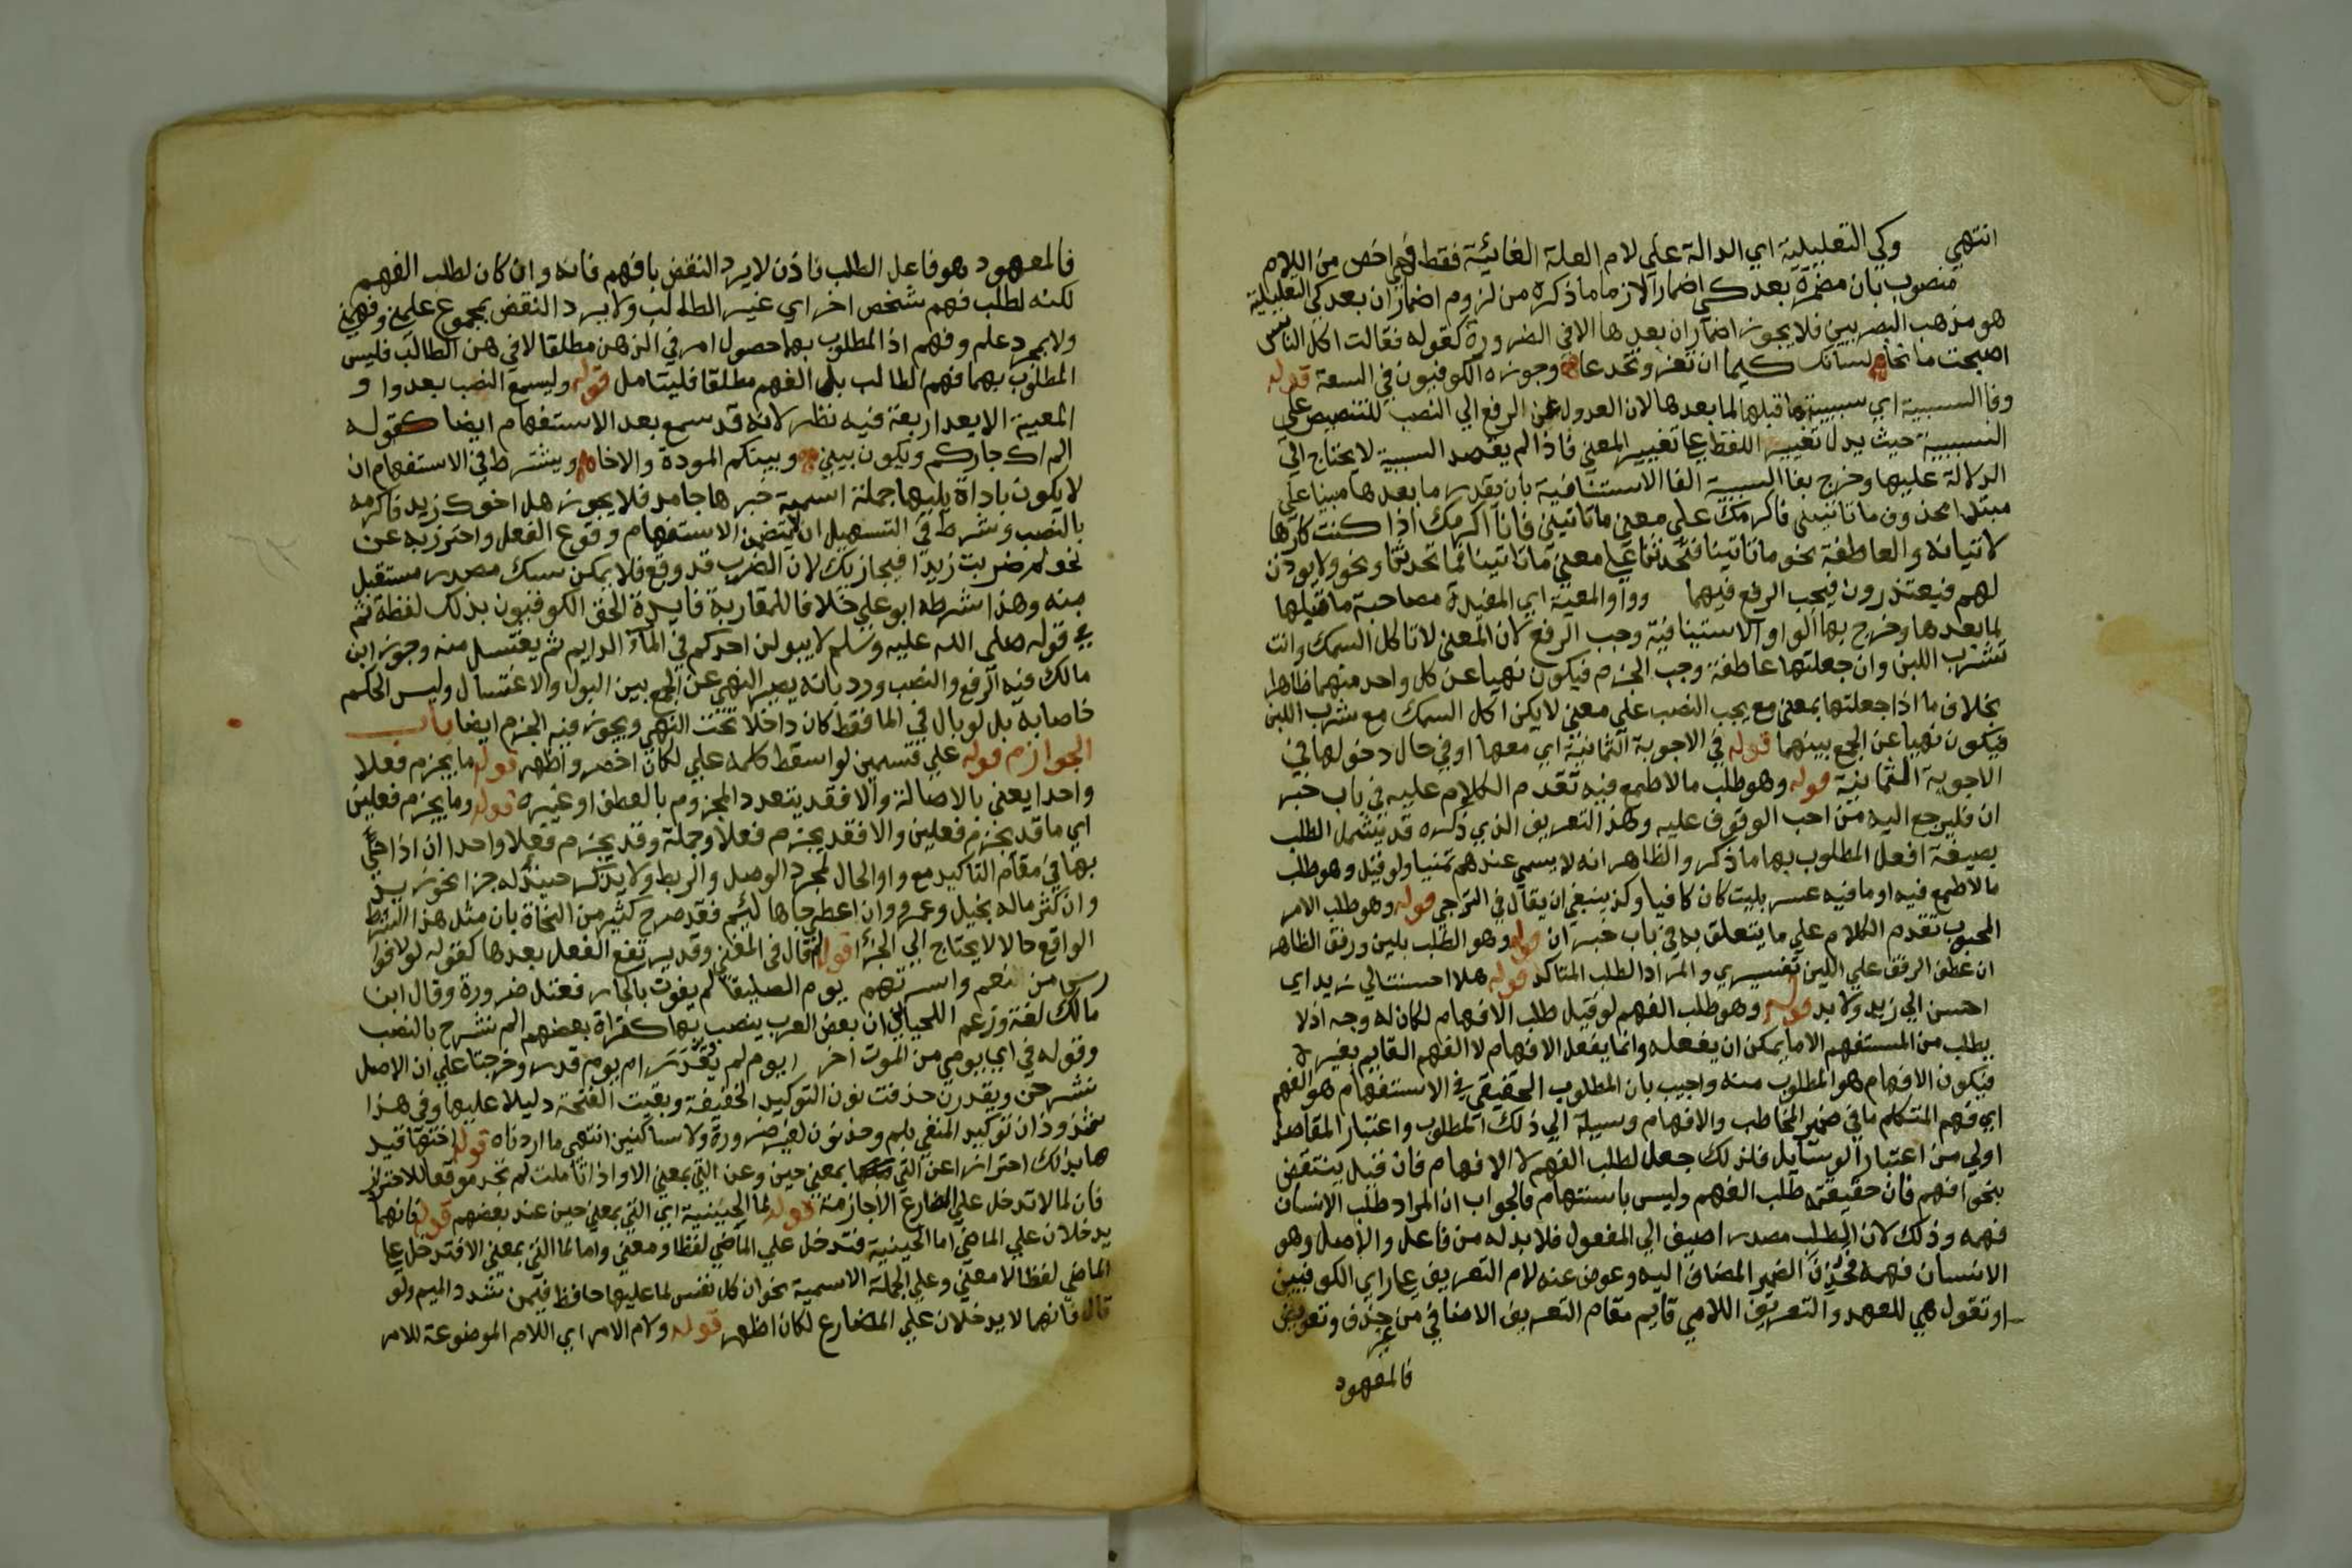 انتهي وكي التعليلية اي الدالة علي لام العلة الغائية فقط فهي اخص من اللام
منصوب بان مضمرة بعد كي اضمارا لازما ما ذكره من لزوم اضمار ان بعد كي التعليلية
هو مذهب البصريين فلا يجوز اضمار ان بعدها الا في الضرورة كقوله فقالت اكل الناس
اصبحت مانحا لسانك كيما ان تغر وتخدعا وجوزه الكوفيون في السعة قوله
وفا السببية اي سببية ما قبلها لما بعدها لان العدول عن الرفع الي النصب للتنصيص علي
السببية حيث يدل تغيير اللفظ علي تغيير المعني فاذا لم يقصد السببية لا يحتاج الي
الدلالة عليها وخرج بفا السببية الفا الاستئنافية بان يقدر ما بعدها مبنيا علي
مبتدا محذوف ما تاتيني فاكرمك علي معني ما تاتيني فانا اكرمك اذا كنت كارها
لاتيانه والعاطفة نحو ما تاتينا فتحدثنا علي معني ما تاتينا فما تحدثنا ونحو ولا يوذن
لهم فيعتذرون فيجب الرفع فيهما وواو المعية اي المفيدة مصاحبة ما قبلها
لما بعدها وخرج بها الواو الاستينافية وجب الرفع لان المعني لا تاكل السمك وانت
تشرب اللبن وان جعلتها عاطفة وجب الجزم فيكون نهيا عن كل واحد منهما ظاهرا
بخلاف ما اذا جعلتها بمعني مع يجب النصب علي معني لا يكن اكل السمك مع شرب اللبن
فيكون نهيا عن الجمع بينهما قوله في الاجوبة الثمانية اي معها او في حال دخولها في
الاجوبة الثمانية قوله وهو طلب ما لا طمع فيه تقدم الكلام عليه في باب خبر
ان فليرجع اليه من احب الوقوف عليه وهذا التعريف الذي ذكره قد يشمل الطلب
بصيغة افعل المطلوب بها ما ذكر والظاهر انه لا يسمي عندهم تمنيا ولو قيل وهو طلب
ما لا طمع فيه او ما فيه عسر بليت كان كافيا وكذ ينبغي ان يقال في الترجي قوله وهو طلب الامر
المحبوب تقدم الكلام علي ما يتعلق به في باب خبر ان قوله وهو الطلب بلين ورفق الظاهر
ان عطف الرفق علي اللين تفسيري والمراد الطلب المتاكد قوله هلا احسنت الي زيد اي
احسن الي زيد ولا بد قوله وهو طلب الفهم لو قيل طلب الافهام لكان له وجه اذ لا
يطلب من المستفهم الا ما يمكن ان يفعله وانما يفعل الافهام لا الفهم القايم بغيره
فيكون الافهام هو المطلوب منه واجيب بان المطلوب الحقيقي في الاستفهام هو الفهم
اي فهم المتكلم ما في ضمير المخاطب والافهام وسيلة الي ذلك المطلوب واعتبار المقاصد
اولي من اعتبار الوسايل فلذلك جعل لطلب الفهم لا الافهام فان قيل ينتقض
بنحو افهم فان حقيقته طلب الفهم وليس باستفهام فالجواب ان المراد طلب الانسان
فهمه وذلك لان الطلب مصدر اضيف الي المفعول فلا بد له من فاعل والاصل وهو
الانسان فهمه فحذف الضمير المضاف اليه وعوض عنه لام التعريف علي راي الكوفيين
او تقول هي للعهد والتعريف اللامي قايم مقام التعريف الاضافي من غير حذف وتعويض
فالمعهود
فالمعهود وهو فاعل الطلب فاذن لا يرد النقض بافهم فانه وان كان لطلب الفهم
لكنه لطلب فهم شخص اخر اي غير الطالب ولا يرد النقض بمجموع علمني وفهمني
ولا بمجرد علم وفهم اذ المطلوب بهما حصول امر في الذهن مطلقا لا في ذهن الطالب فليس
المطلوب بهما فهم الطالب بل الفهم مطلقا فليتامل قوله وليسمع النصب بعد واو
المعية الا بعد اربعة فيه نظر لانه قد سمع بعد الاستفهام ايضا كقوله
الم اك جاركم ويكون بيني وبينكم المودة والاخا ويشترط في الاستفهام ان
لا يكون باداة يليها جملة اسمية خبرها جامد فلا يجوز هل اخوك زيد فاكرمه
بالنصب وشرط في التسهيل ان لا يتضمن الاستفهام وقوع الفعل واحترز به عن
نحو لم ضربت زيدا فيجازيك لان الضرب قد وقع فلا يمكن سبك مصدر مستقبل
منه وهذا شرطه ابو علي خلافا للمغاربة فايدة الحق الكوفيون بذلك لفظة ثم
في قوله صلي الله عليه وسلم لا يبولن احدكم في الماء الدايم ثم يغتسل منه وجوز ابن
مالك فيه الرفع والنصب ورد بانه يصير النهي عن الجمع بين البول والاغتسال وليس الحكم
خاصا به بل لو بال في الما فقط كان داخلا تحت النهي ويجوز فيه الجزم ايضا باب
الجوازم قوله علي قسمين لو اسقط كلمه علي لكان اخصر واظهر قوله ما يجزم فعلا
واحدا يعني بالاصالة والا فقد يتعدد المجزوم بالعطف او غيره قوله وما يجزم فعلين
اي ما قد يجزم فعلين والا فقد يجزم فعلا وجملة وقد يجزم فعلا واحدا ان اذا جي
بها في مقام التاكيد مع واو الحال لمجرد الوصل والربط ولا يذكر حينئذ له جزا نحو زيد
وان كثر ماله بخيل وعمرو وان اعطي جاها لئيم فقد صرح كثير من النحاة بان مثل هذا الشرط
الواقع حالا لا يحتاج الي الجزا قوله قال في المغني وقد يرتفع الفعل بعدها كقوله لولا فوا
رس من نعم واسرتهم يوم الصليفا لم يوفون بالجار فقيل ضرورة وقال ابن
مالك لغة وزعم اللحياني ان بعض العرب ينصب بها كقراة بعضهم الم نشرح بالنصب
وقوله في اي يومي من الموت افر ايوم لم يقدر ام يوم قدر وخرجتا علي ان الاصل
نشرحن ويقدرن حذفت نون التوكيد الخفيفة وبقيت الفتحة دليلا عليها وفي هذا
شذوذان توكيد المنفي بلم وحذف نون لغير ضرورة ولا ساكنين انتهي ما اردناه قوله اختها قيد
ها بذلك احترازا عن التي بمعني حين وعن التي بمعني الا واذا تاملت لم تجد موقعا للاحتراز
فان لما لا تدخل علي المضارع الا جازمة قوله لما الحينية اي التي بمعني حين عند بعضهم قوله فانهما
يدخلان علي الماضي اما الحينية فتدخل علي الماضي لفظا ومعني واما لما التي بمعني الا فتدخل علي
الماضي لفظا لا معني وعلي الجملة الاسمية نحو ان كل نفس لما عليها حافظ فيمن شدد الميم ولو
قال فانهما لا يدخلان علي المضارع لكان اظهر قوله ولام الامر اي اللام الموضوعة للامر